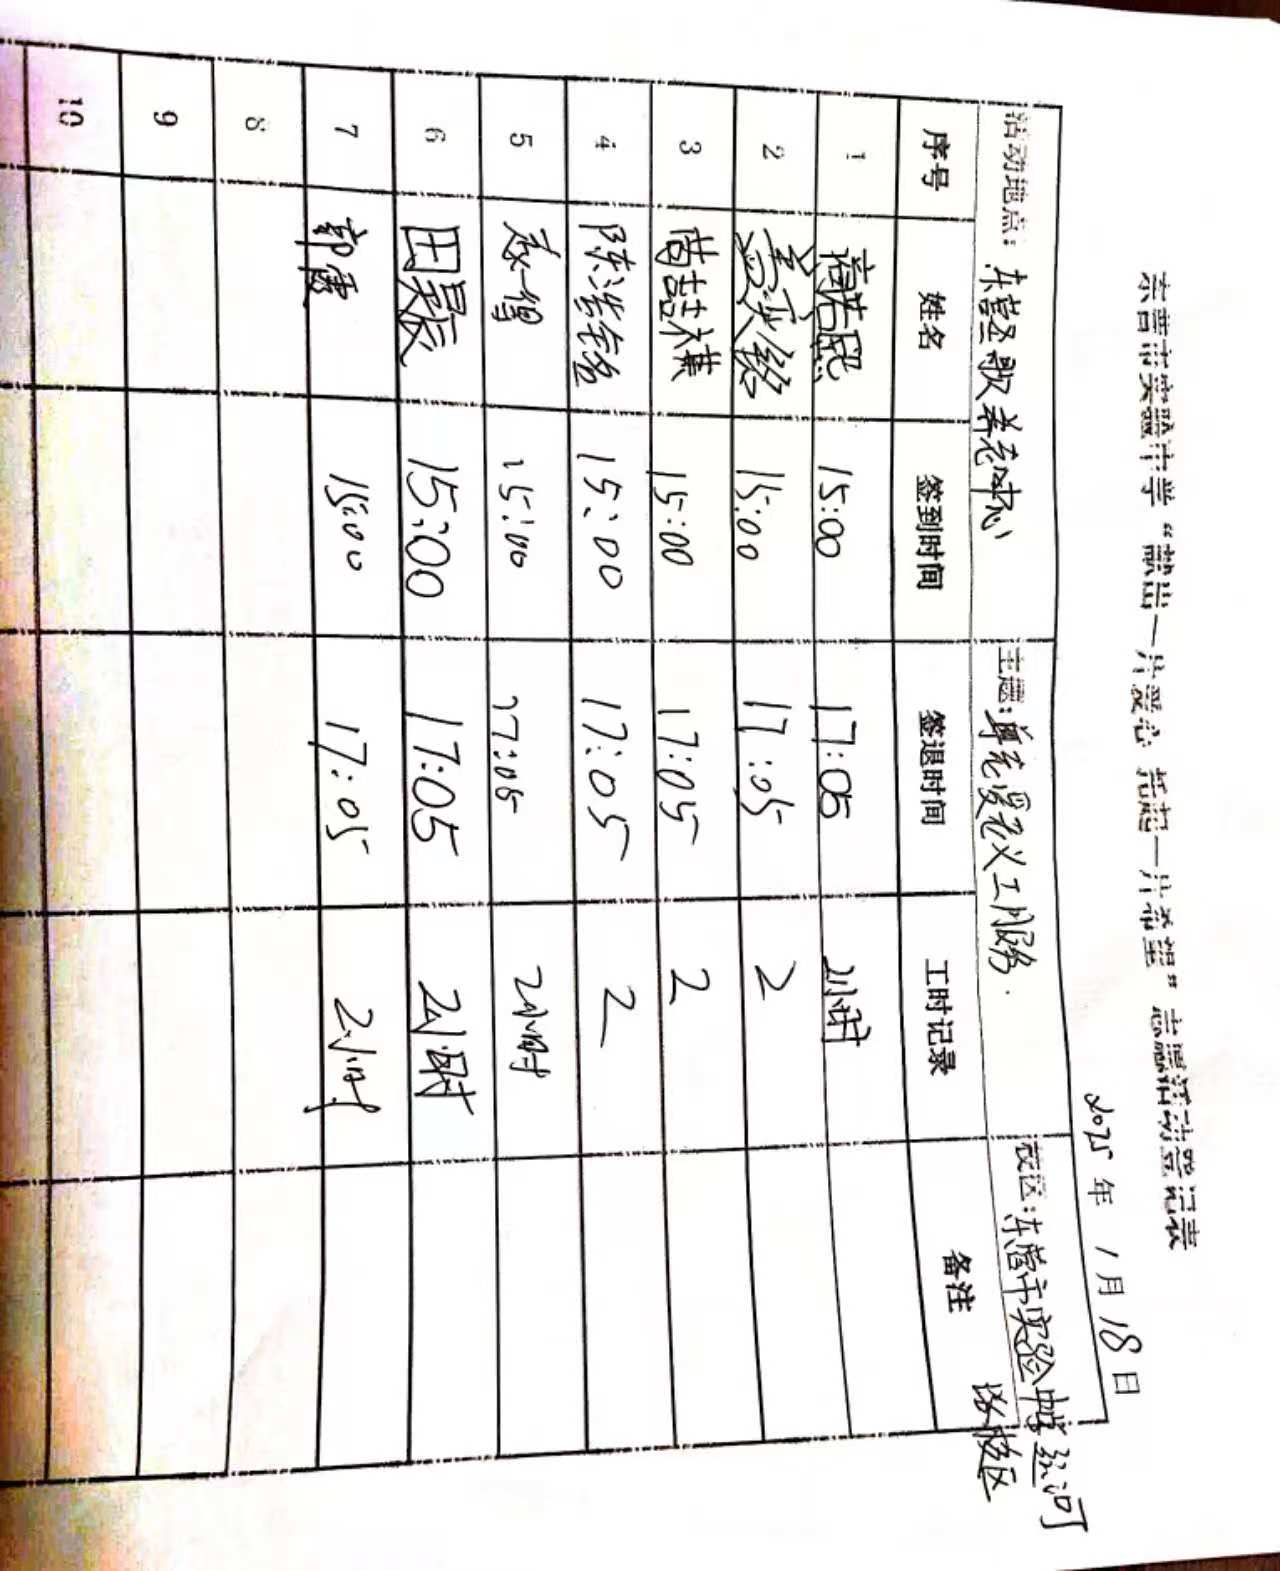 东营市实验中学“献出一片爱心 托起一片希望”志愿活动登记表
2025年1月18日
活动地点：东营圣歌养老中心 主题：尊老爱老义工服务. 校区：东营市实验中学
校区
序号 姓名 签到时间 签退时间 工时记录 备注
1 15:00 17:05 2小时
2 15:00 17:05 2
3 15:00 17:05 2
4 陈 15:00 17:05 2
5 15:00 17:05 2小时
6 田昊辰 15:00 17:05 2小时
7 郭 15:00 17:05 2小时
8
9
10